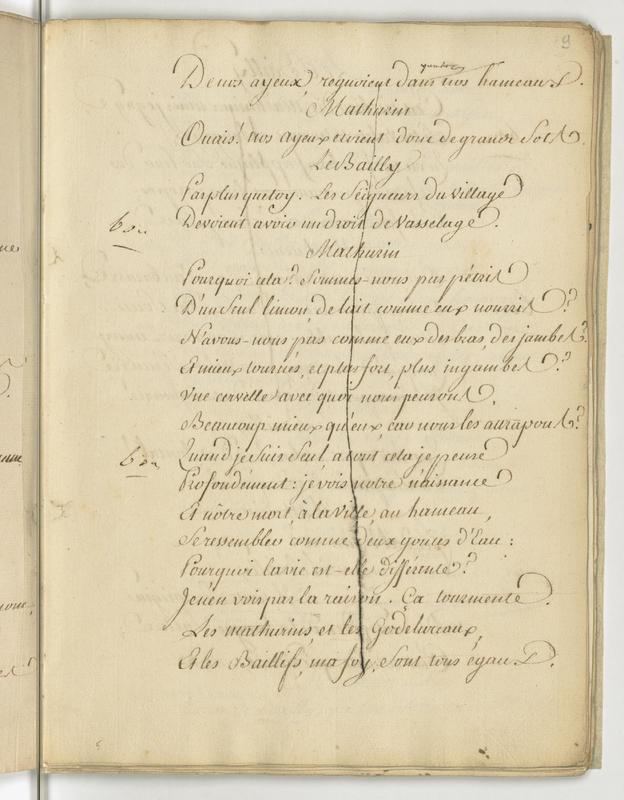 9
De nos ayeux, regnoient dans nos hameaux.
Mathurin
Ouais! nos ayeux etoient donc de grands Sots.
Le Bailly
Par plus que toy. Les Seigneurs du village
Devoient avoir un droit de Vasselage.
Mathurin
Pourquoi cela? Sommes-nous pas pétris
D'un Seul limon, de lait comme eux nourris?
N'avons-nous pas comme eux des bras, des jambes?
Et mieux tournés, et plus fort, plus ingambes?
Une cervelle avec quoi nous pensons,
Beaucoup mieux qu'eux, car nous les attrapons?
Quand je suis Seul a tout cela je pense
Profondément: je vois notre naissance
Et nôtre mort, à la ville, au hameau,
Se ressembler comme deux goutes d'Eau:
Pourquoi la vie est-elle différente?
Je n'en vois pas la raison. Ça tourmente.
Les mathurins, et les Godelureaux,
Et les Baillifs, ma foy, Sont tous égaux.